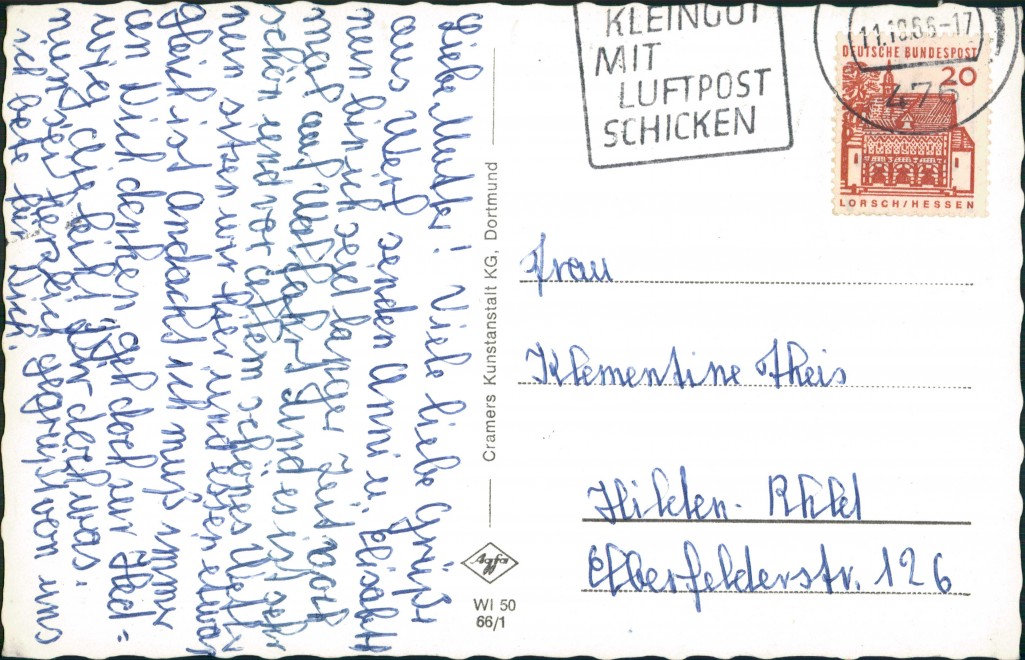 Liebe Mutter! Viele liebe Grüße
aus Werl senden Anni u. Elisabeth
nun bin ich seit langer Zeit noch
mal auf Wallfahrt und es ist sehr
schön und vor allem schönes Wetter
nun sitzen wir hier und essen etwas
gleich ist Andacht ich muß immer
an Dich denken geh doch zur Heil=
ung, das hilft Dir doch was.
nun sei herzlich gegrüßt von uns
ich bete für Dich.
Cramers Kunstanstalt KG, Dortmund
Agfa
WI 50
66/1
KLEINGUT
MIT
LUFTPOST
SCHICKEN
11.10.66-17
476
DEUTSCHE BUNDESPOST
20
LORSCH/HESSEN
Frau
Klementine Theis
Hilden-Rhld
Elberfelderstr. 126